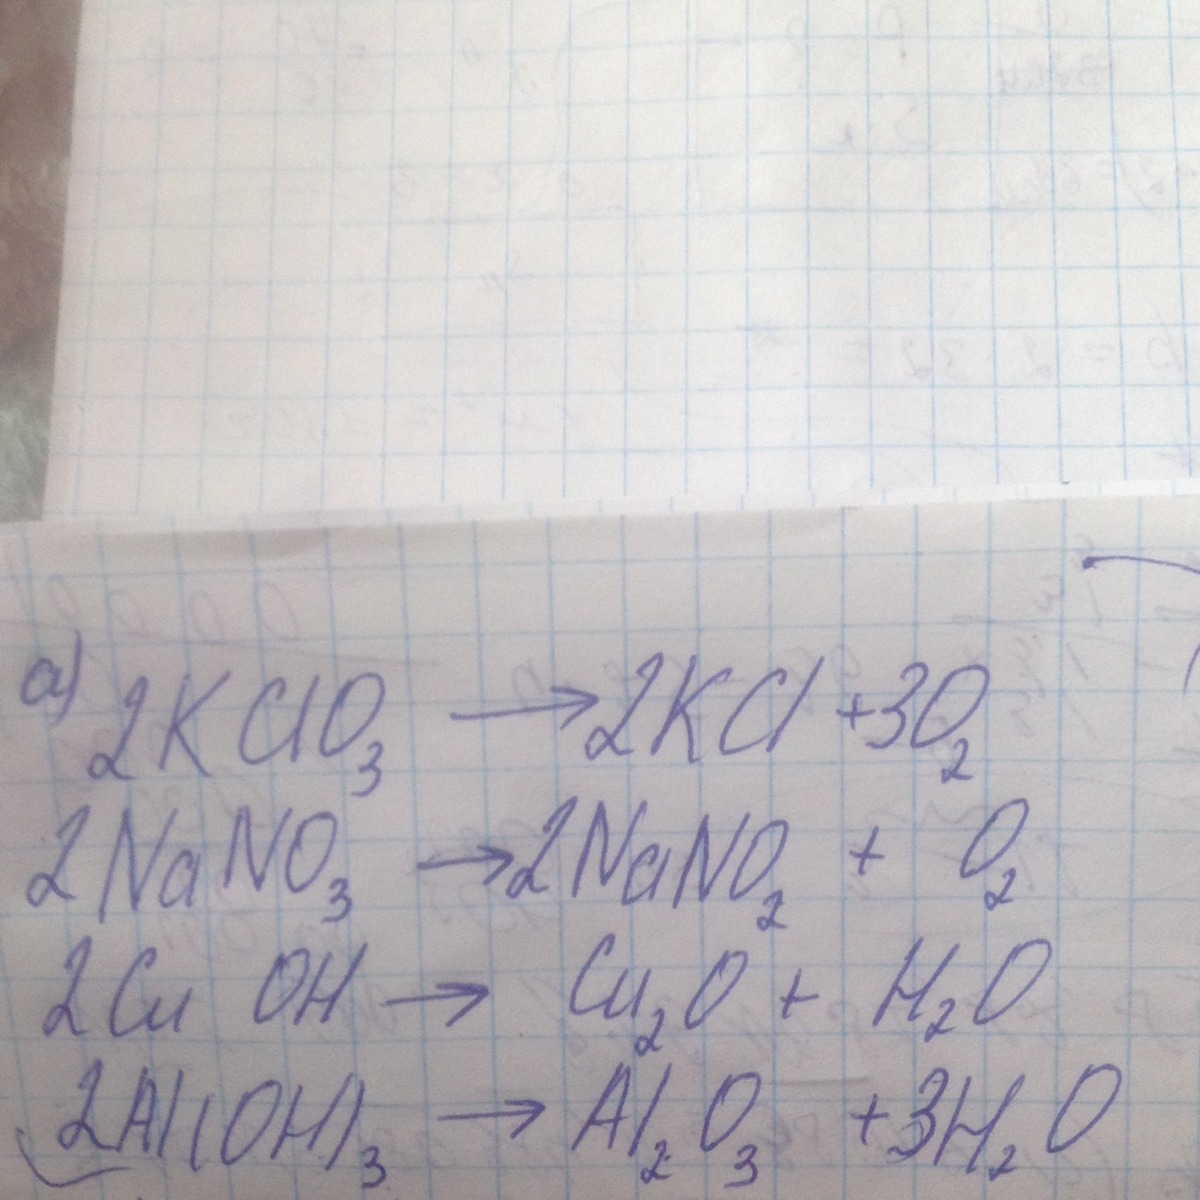 а) 2KClO₃ → 2KCl + 3O₂
2NaNO₃ → 2NaNO₂ + O₂
2CuOH → Cu₂O + H₂O
2Al(OH)₃ → Al₂O₃ + 3H₂O